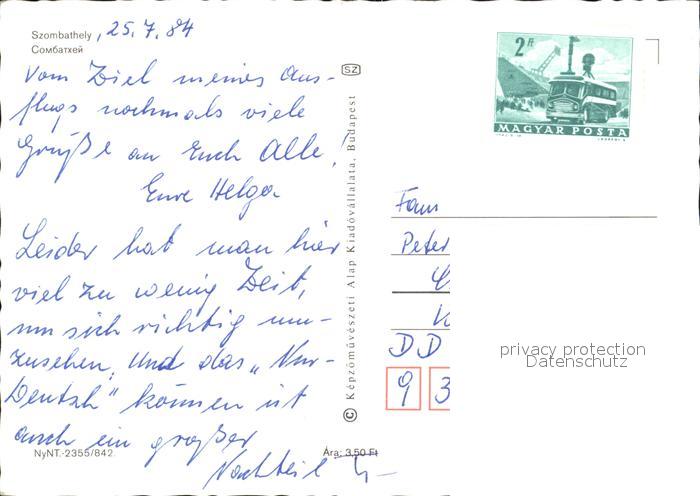 Szombathely, 25.7.84
Сомбатхей
Vom Ziel meines Aus-
flugs nochmals viele
Grüße an Euch Alle!
Eure Helga
Leider hat man hier
viel zu wenig Zeit,
um sich richtig um-
zusehen, und das „Nur-
Deutsch" können ist
auch ein großer
Nachteil
NyNT.-2355/842.
Ára: 3,50 Ft
SZ
© Képzőművészeti Alap Kiadóvállalata, Budapest
2 Ft
MAGYAR POSTA
Fam
Peter
DD
9 3
privacy protection
Datenschutz